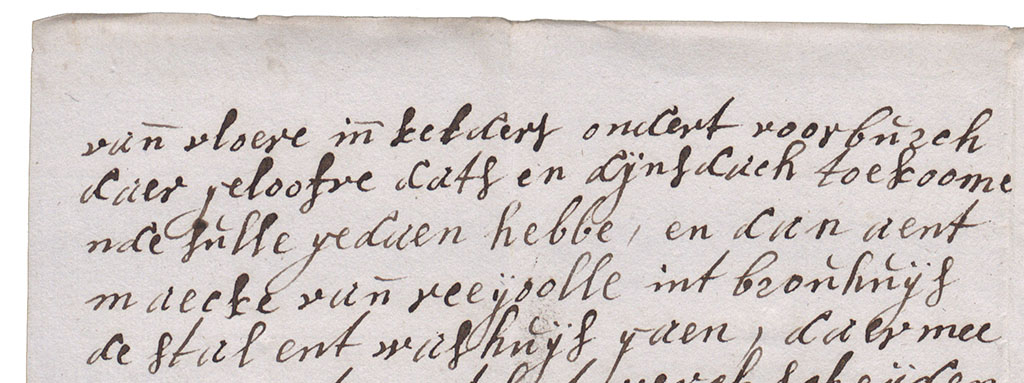 van vloere in kelders ondert voorburch
daer geloofve dats en dijnsdach toekoome
nde sulle gedaen hebbe, en dan aent
maecke van reeyoolle int brouhuijs
de stal ent washuijs gaen, daer mee